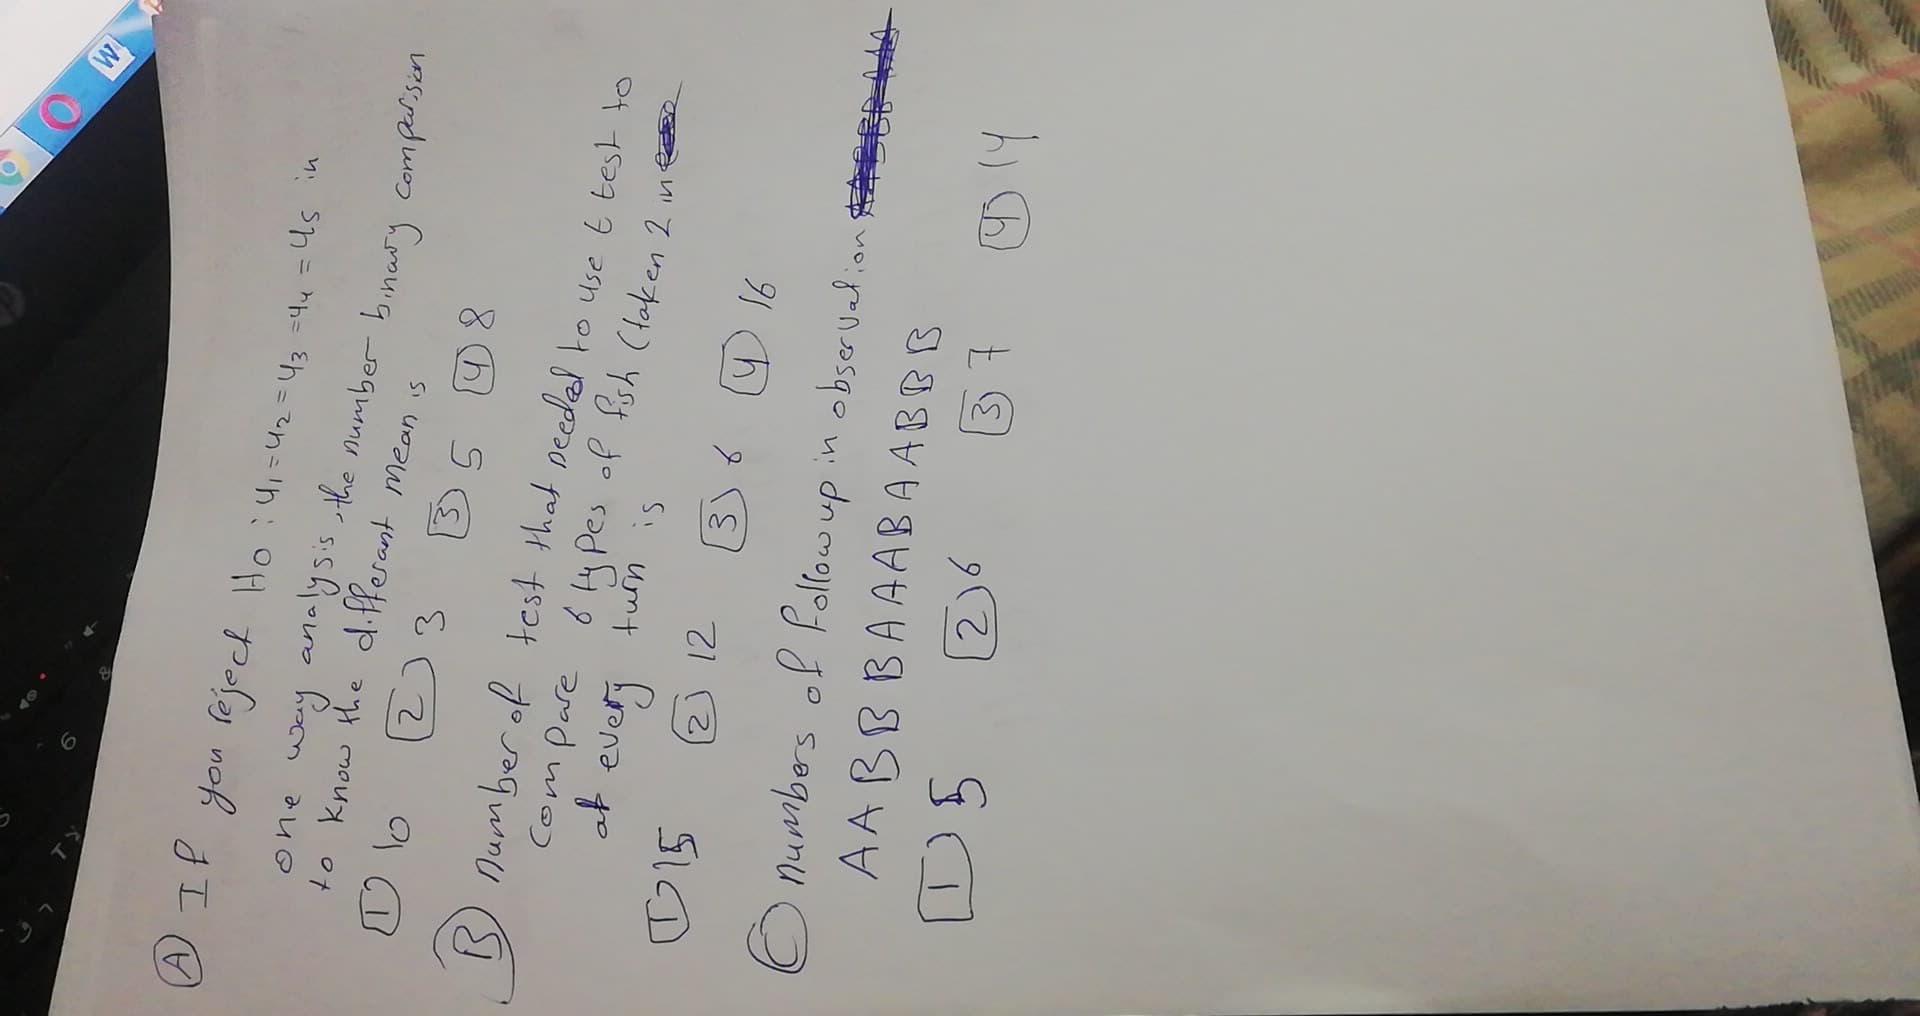 A If you reject Ho : 41 = 42 = 43 = 44 = 45 in
one way analysis, the number binary comparision
to know the differant mean is
1 10 2 3 3 5 4 8
B Number of test that needed to use t test to
compare 6 types of fish (taken 2 in
at every turn is
1 15 2 12 3 6 4 16
C numbers of followup in observation
AABBBAAABAABBB
1 5 2 6 3 7 4 14
W